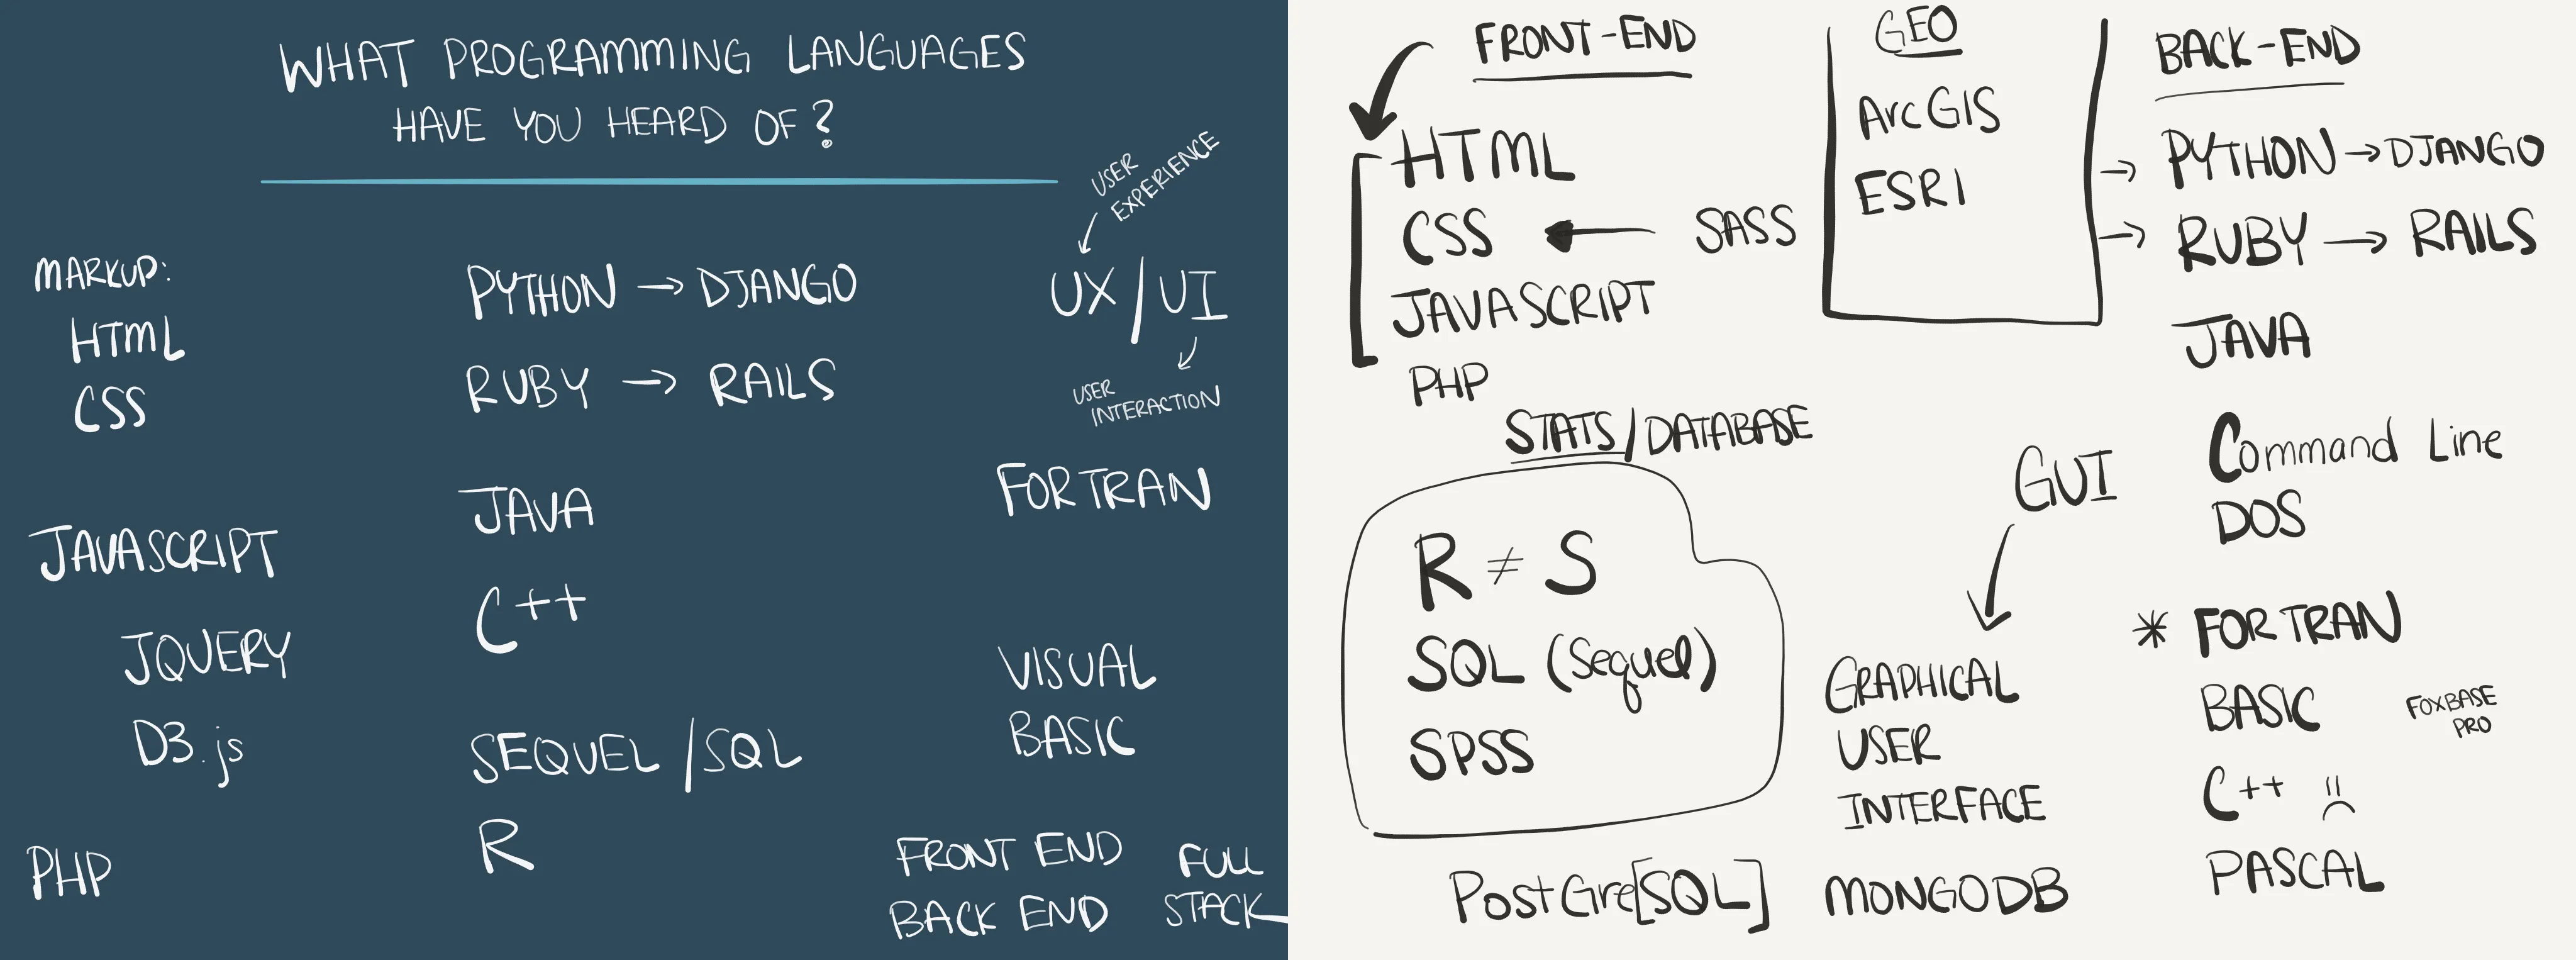 WHAT PROGRAMMING LANGUAGES
HAVE YOU HEARD OF?
USER
EXPERIENCE
MARKUP:
HTML
CSS
PYTHON → DJANGO
UX/UI
RUBY → RAILS
USER
INTERACTION
FORTRAN
JAVASCRIPT
JAVA
C++
JQUERY
D3.js
VISUAL
BASIC
SEQUEL/SQL
R
PHP
FRONT END
BACK END
FULL
STACK
FRONT-END
HTML
CSS ← SASS
JAVASCRIPT
PHP
GEO
ArcGIS
ESRI
BACK-END
→ PYTHON → DJANGO
→ RUBY → RAILS
JAVA
Command Line
DOS
STATS/DATABASE
R ≠ S
SQL (Sequel)
SPSS
GUI
GRAPHICAL
USER
INTERFACE
* FORTRAN
BASIC
FOXBASE
PRO
C++
PASCAL
PostGre[SQL]
MONGODB